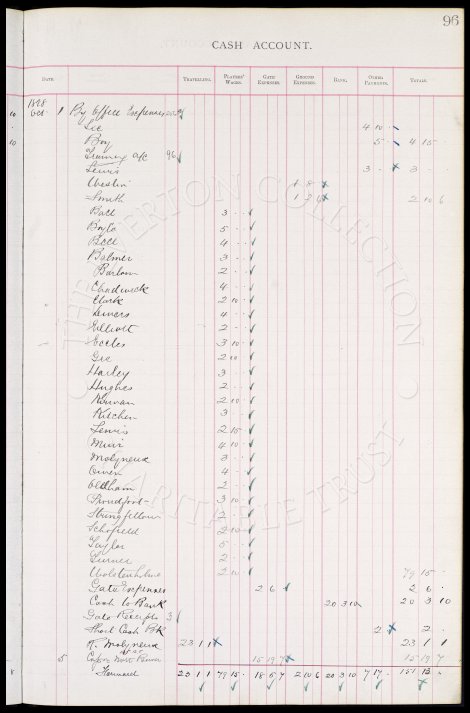 96
CASH ACCOUNT.
DATE. TRAVELLING. PLAYERS' WAGES. GATE EXPENSES. GROUND EXPENSES. BANK. OTHER PAYMENTS. TOTALS.
Oct 1 By Office Expenses
Lee 4 10
Boy 5 4 15
96
Lewis 3 3
1 8
Smith 1 2 6 2 10 6
Ball 3
Boyle 5
Bell 4
Balmer 3
Barlow 2
Chadwick 4
Clark 2 10
4
Elliott 2
Eccles 3 10
Gee 2 10
Harley 3
Hughes 2
Kirwan 2 10
Kitchen 3
Lewis 2 15
Muir 4 10
Molyneux 3
Owen 4
Oldham 2
Proudfoot 3 10
Stringfellow 2
Schofield 2 10
Taylor 5
Turner 2
Wolstenholme 2 10 79 15
Gate Expenses 2 6 2 6
Cash to Bank 20 3 10 20 3 10
Gate Receipts 3
Short Cash Bk 2 2
R. Molyneux 23 1 1 23 1 1
5 15 19 7 15 19 7
Forward 23 1 1 79 15 18 5 7 2 10 6 20 3 10 7 17 151 13
THE EVERTON COLLECTION
CHARITABLE TRUST